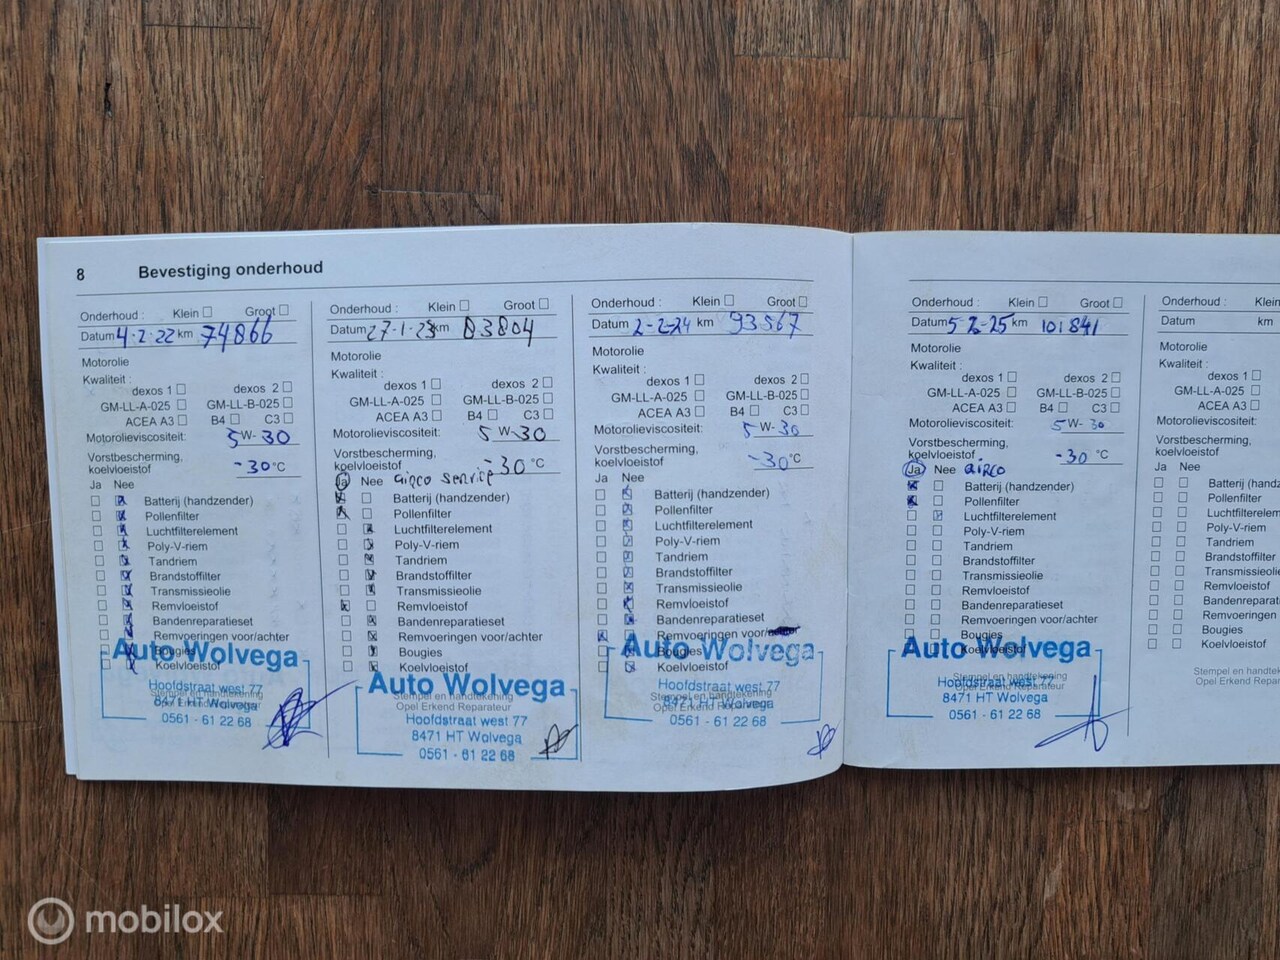 8 Bevestiging onderhoud
Onderhoud : Klein Groot
Datum 4-2-22 km 74866
Motorolie
Kwaliteit :
dexos 1 dexos 2
GM-LL-A-025 GM-LL-B-025
ACEA A3 B4 C3
Motorolieviscositeit: 5 W- 30
Vorstbescherming,
koelvloeistof -30 °C
Ja Nee
Batterij (handzender)
Pollenfilter
Luchtfilterelement
Poly-V-riem
Tandriem
Brandstoffilter
Transmissieolie
Remvloeistof
Bandenreparatieset
Remvoeringen voor/achter
Bougies
Koelvloeistof
Auto Wolvega
Hoofdstraat west 77
Stempel en handtekening
8471 HT Wolvega
Opel Erkend Reparateur
0561 - 61 22 68
Onderhoud : Klein Groot
Datum 27-1-23 km 83804
Motorolie
Kwaliteit :
dexos 1 dexos 2
GM-LL-A-025 GM-LL-B-025
ACEA A3 B4 C3
Motorolieviscositeit: 5 W- 30
Vorstbescherming,
koelvloeistof -30 °C
Ja Nee airco service
Batterij (handzender)
Pollenfilter
Luchtfilterelement
Poly-V-riem
Tandriem
Brandstoffilter
Transmissieolie
Remvloeistof
Bandenreparatieset
Remvoeringen voor/achter
Bougies
Koelvloeistof
Auto Wolvega
Stempel en handtekening
Opel Erkend Reparateur
Hoofdstraat west 77
8471 HT Wolvega
0561 - 61 22 68
Onderhoud : Klein Groot
Datum 2-2-24 km 93567
Motorolie
Kwaliteit :
dexos 1 dexos 2
GM-LL-A-025 GM-LL-B-025
ACEA A3 B4 C3
Motorolieviscositeit: 5 W- 30
Vorstbescherming,
koelvloeistof -30 °C
Ja Nee
Batterij (handzender)
Pollenfilter
Luchtfilterelement
Poly-V-riem
Tandriem
Brandstoffilter
Transmissieolie
Remvloeistof
Bandenreparatieset
Remvoeringen voor/achter
Bougies
Koelvloeistof
Auto Wolvega
Hoofdstraat west 77
Stempel en handtekening
8471 HT Wolvega
Opel Erkend Reparateur
0561 - 61 22 68
Onderhoud : Klein Groot
Datum 5-2-25 km 101841
Motorolie
Kwaliteit :
dexos 1 dexos 2
GM-LL-A-025 GM-LL-B-025
ACEA A3 B4 C3
Motorolieviscositeit: 5 W- 30
Vorstbescherming,
koelvloeistof -30 °C
Ja Nee airco
Batterij (handzender)
Pollenfilter
Luchtfilterelement
Poly-V-riem
Tandriem
Brandstoffilter
Transmissieolie
Remvloeistof
Bandenreparatieset
Remvoeringen voor/achter
Bougies
Koelvloeistof
Auto Wolvega
Stempel en handtekening
Hoofdstraat west 77
Opel Erkend Reparateur
8471 HT Wolvega
0561 - 61 22 68
Onderhoud : Klein
Datum km
Motorolie
Kwaliteit :
dexos 1
GM-LL-A-025
ACEA A3
Motorolieviscositeit:
Vorstbescherming,
koelvloeistof
Ja Nee
Batterij (handz
Pollenfilter
Luchtfilterelem
Poly-V-riem
Tandriem
Brandstoffilter
Transmissieolie
Remvloeistof
Bandenreparat
Remvoeringen
Bougies
Koelvloeistof
Stempel en hand
Opel Erkend Repa
mobilox